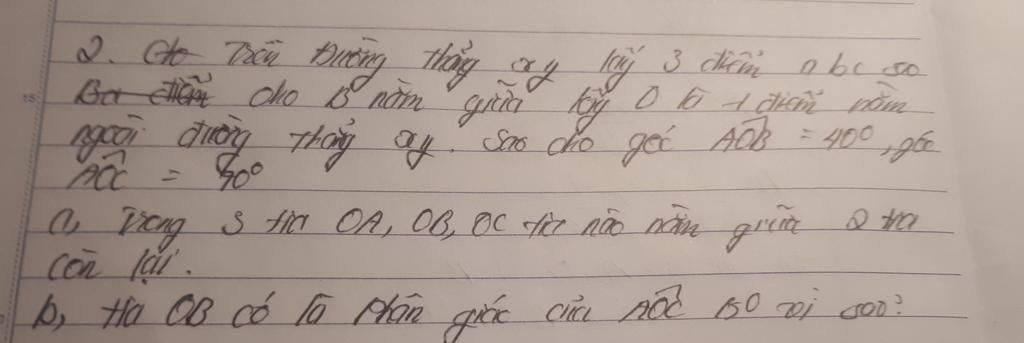 2. Cto Trên Đường thẳng xy lấy 3 điểm abc sao
Ba điểm cho B nằm giữa lấy O là 1 điểm nằm
ngoài đường thẳng xy. sao cho góc AOB = 40°, góc
AOC = 90°
a, Trong 3 tia OA, OB, OC tia nào nằm giữa 2 tia
còn lại.
b, tia OB có là phân giác của AOC ko vì sao?